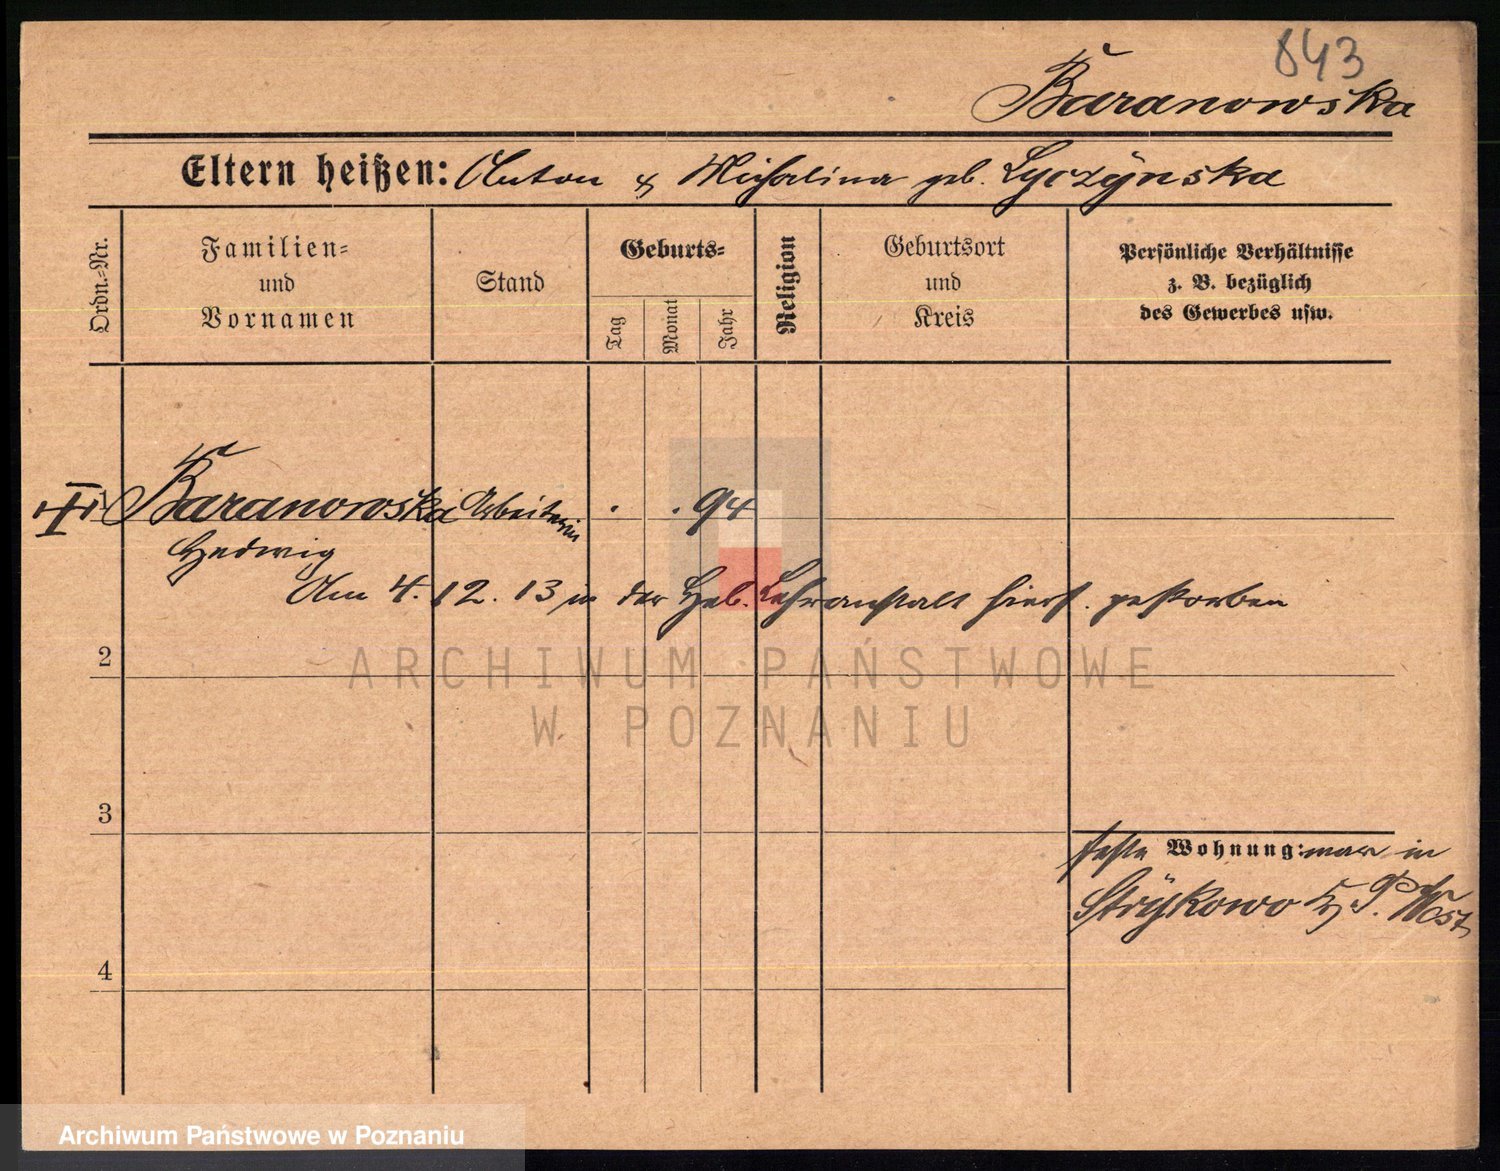 843
Baranowska
Eltern heißen: Anton & Michalina geb. Lyczynska
Ordn.-Nr.
Familien-
und
Vornamen
Stand
Geburts-
Tag
Monat
Jahr
Religion
Geburtsort
und
Kreis
Persönliche Verhältnisse
z. B. bezüglich
des Gewerbes usw.
1 Baranowska Arbeiterin . . 94
Hedwig
Am 4. 12. 13 in der Heb. Lehranstalt hiers. gestorben
2
ARCHIWUM PAŃSTWOWE
W POZNANIU
3
feste Wohnung: war in
Strykowo Kr. P. West
4
Archiwum Państwowe w Poznaniu